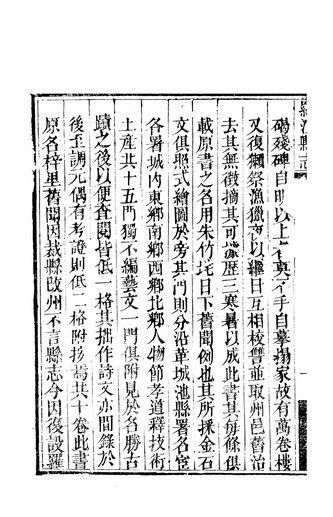 碣殘碑自明以上
手自摹搨家故有萬卷樓
又復獺祭漁獵
日互相校讐並取州邑舊治
去其無徵摘其可
歷三寒暑以成此書其每條俱
載原書之名用朱竹垞日下舊聞例也其所採金石
文俱照式繪圖於旁其門則分沿革城池縣署名宦
各署城內東鄉南鄉西鄉北鄉人物節孝道釋技術
土產共十五門獨不編藝文一門俱附見於名勝古
蹟之後以便查閱皆低一格其拙作詩文亦間錄於
後至調元偶有考證則低二格附按焉其十卷此書
原名梓里舊聞因裁縣改州不言縣志今因復設羅
縣志